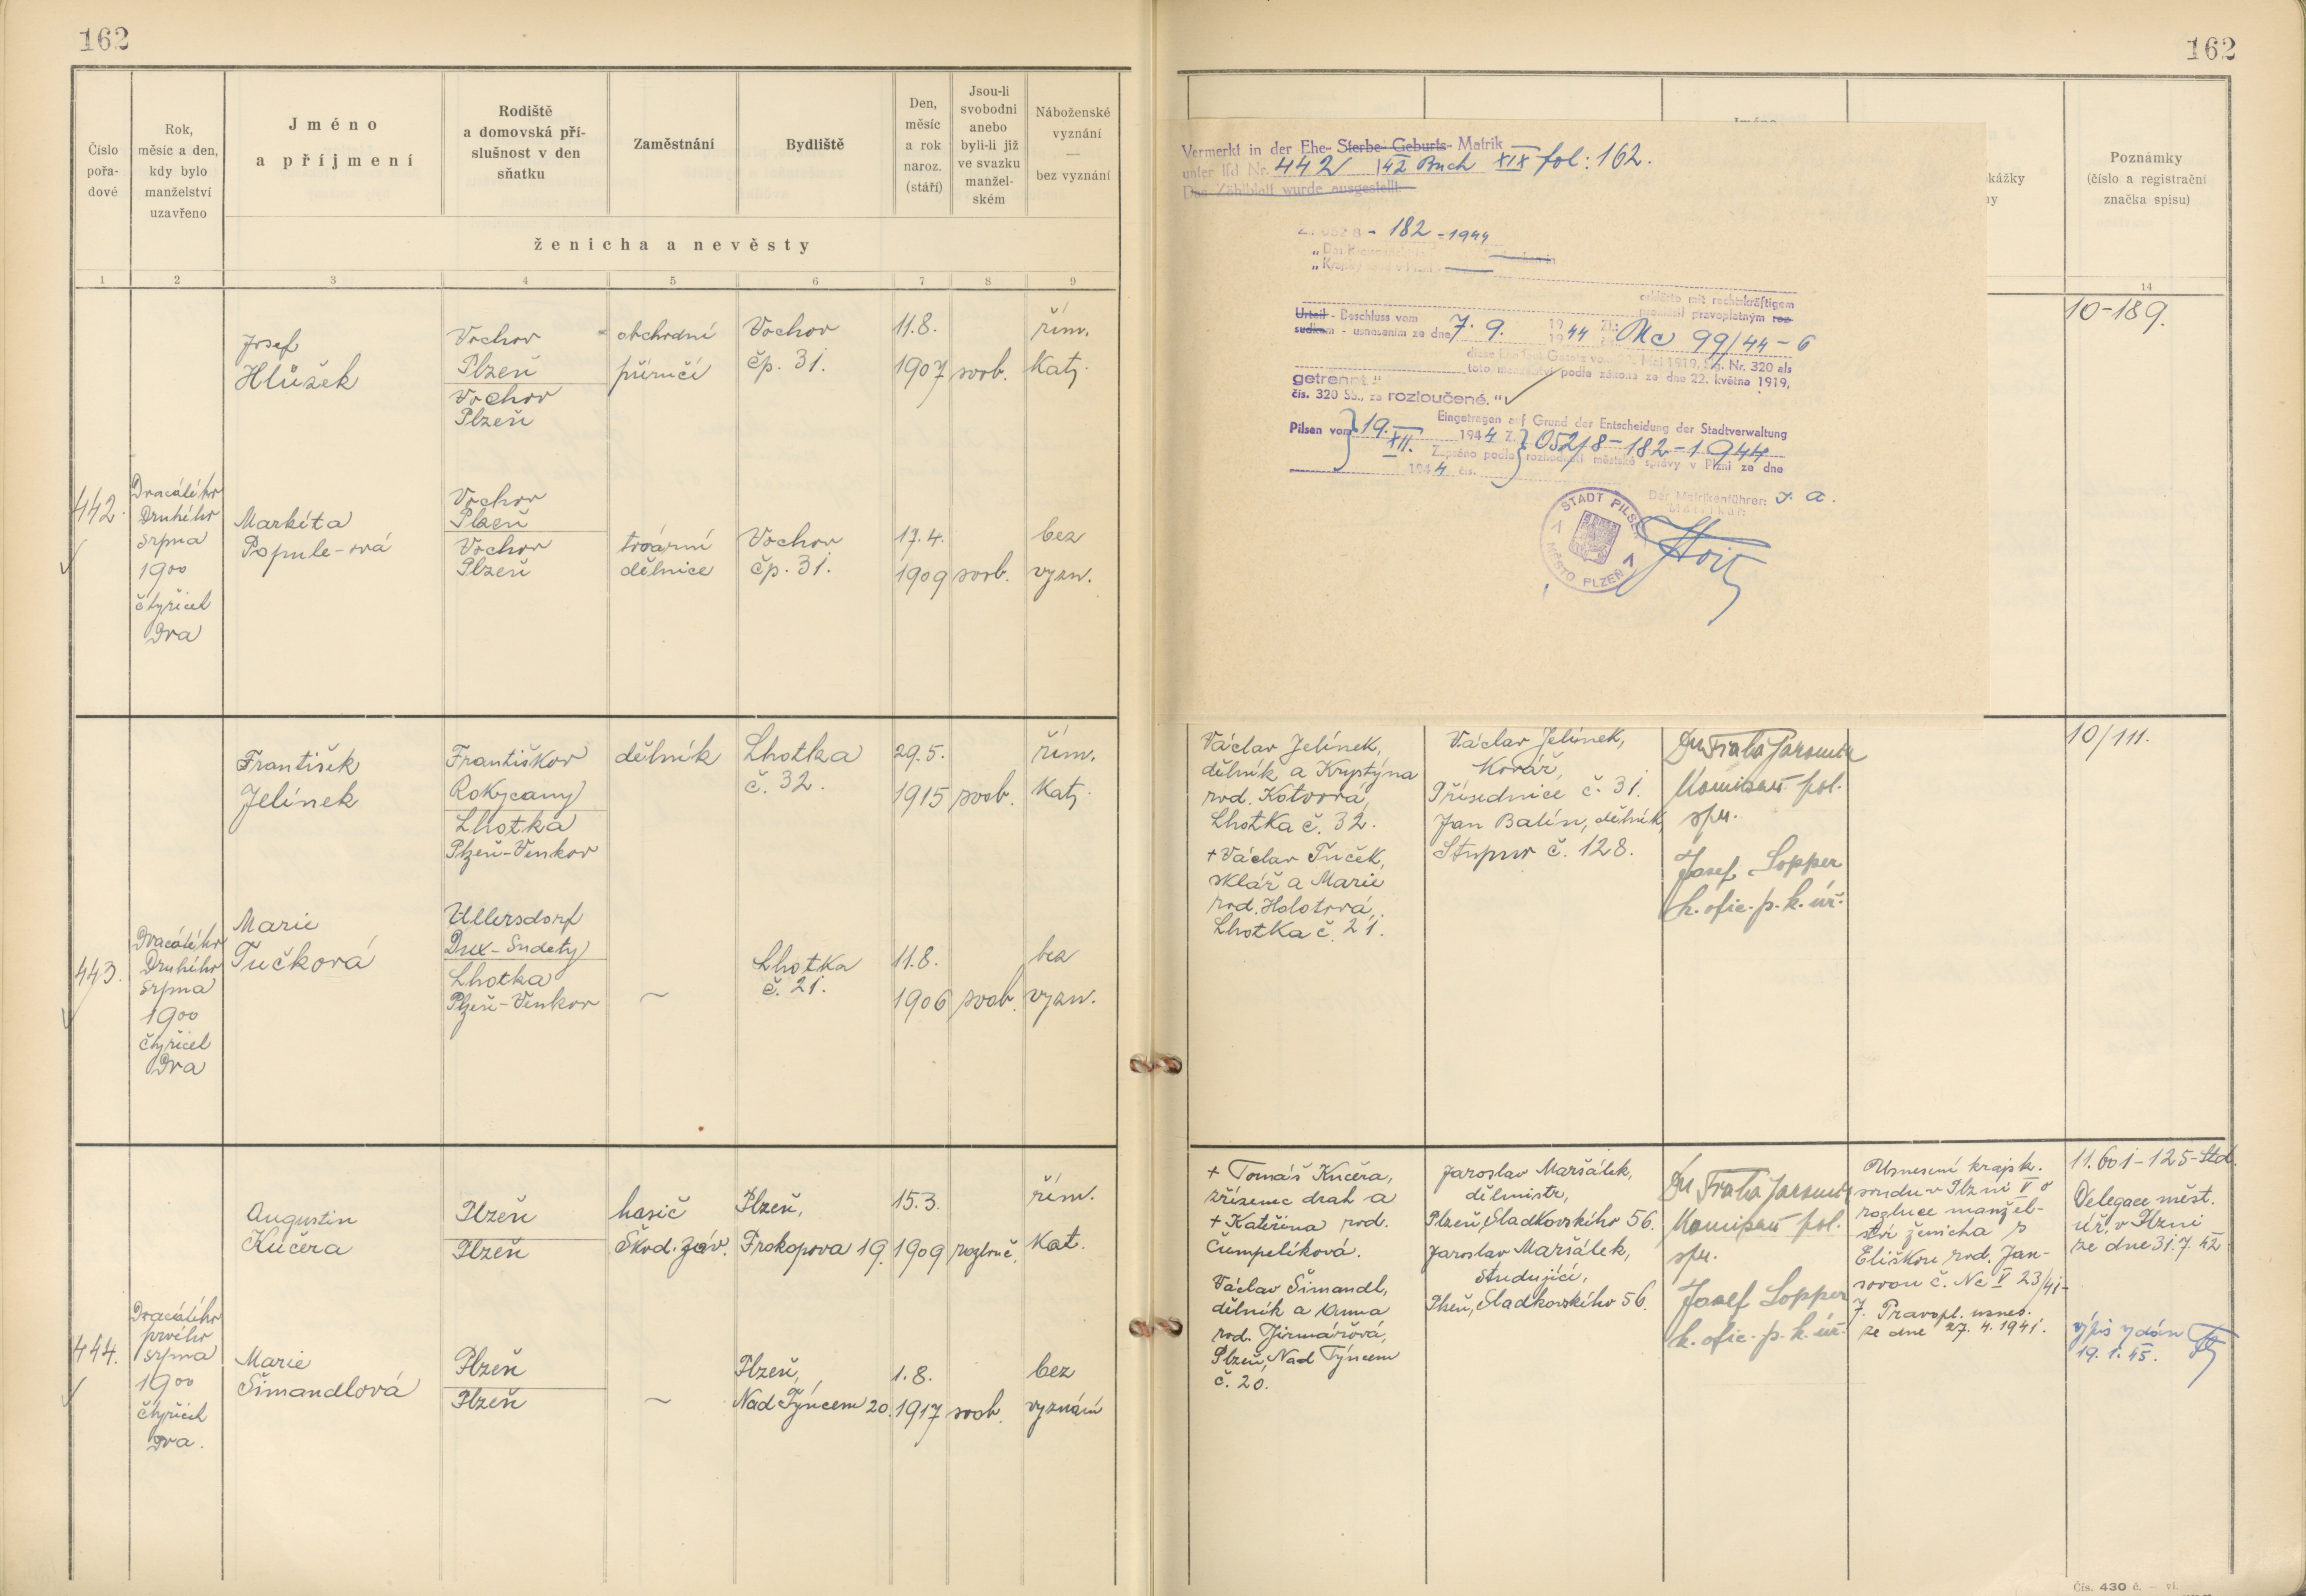 162
162
Číslo pořa-dové
Rok, měsíc a den, kdy bylo manželství uzavřeno
Jméno
a příjmení
Rodiště
a domovská pří-
slušnost v den
sňatku
Zaměstnání
Bydliště
Den,
měsíc
a rok
naroz.
(stáří)
Jsou-li
svobodni
anebo
byli-li již
ve svazku
manžel-
ském
Náboženské
vyznání
—
bez vyznání
ženicha a nevěsty
1 2 3 4 5 6 7 8 9
442.
Dvacátého
Druhého
srpna
1900
čtyřicet
Dva
Josef
Hlůžek
Vochov
Plzeň
Vochov
Plzeň
obchodní
příručí
Vochov
čp. 31.
11.8.
1907
svob.
řím.
kat.
Markéta
Popule-ová
Vochov
Plzeň
Vochov
Plzeň
tovární
dělnice
Vochov
čp. 31.
17.4.
1909
svob.
bez
vyzn.
443.
Dvacátého
Druhého
srpna
1900
čtyřicet
Dva
František
Jelínek
Františkov
Rokycany
Lhotka
Plzeň-Venkov
dělník
Lhotka
č. 32.
29.5.
1915
svob.
řím.
kat.
Marie
Tučková
Ullersdorf
Dux-Sudety
Lhotka
Plzeň-Venkov
—
Lhotka
č. 21.
11.8.
1906
svob.
bez
vyzn.
444.
Dvacátého
prvého
srpna
1900
čtyřicet
Dva.
Augustin
Kučera
Plzeň
Plzeň
hasič
Škod. záv.
Plzeň,
Prokopova 19.
15.3.
1909
rozluč.
řím.
kat.
Marie
Šimandlová
Plzeň
Plzeň
—
Plzeň,
Nad Týncem 20.
1.8.
1917
svob.
bez
vyznání
Poznámky
(číslo a registrační
značka spisu)
14
Vermerkt in der Ehe- Sterbe- Geburts- Matrik
unter lfd Nr. 442/42 Buch XIX fol: 162.
Das Zählblatt wurde ausgestellt.
- 182 - 1944
erklärte mit rechtskräftigem
prohlásil pravoplatným roz-
Urteil - Beschluss vom
sudkem - usnesením ze dne 7. 9. 1944 Zl.: Nc 99/44-6
diese Ehe laut Gesetz vom 22. Mai 1919, Slg. Nr. 320 als
toto manželství podle zákona ze dne 22. května 1919,
getrennt."
čís. 320 Sb., za rozloučené."
Eingetragen auf Grund der Entscheidung der Stadtverwaltung
Pilsen vom 19. XII. 1944 Z. 052/8-182-1944
Zapsáno podle rozhodnutí městské správy v Plzni ze dne
1944 čís.
Der Matrikenführer: J. A.
Matrikář:
STADT PILSEN
MĚSTO PLZEŇ
10-189.
Václav Jelínek,
dělník a Krystýna
rod. Kotvová,
Lhotka č. 32.
+ Václav Tuček,
sklář a Marie
rod. Holotová,
Lhotka č. 21.
Václav Jelínek,
kovář,
Přísednice č. 31.
Jan Balín, dělník,
Stupno č. 128.
Komisař pol.
spr.
Josef Sopper
k. ofic. p. k. úř.
10/111.
+ Tomáš Kučera,
zřízenec drah a
+ Kateřina rod.
Čumpelíková.
Václav Šimandl,
dělník a Anna
rod. Jirmářová,
Plzeň, Nad Týncem
č. 20.
Jaroslav Maršálek,
dílmistr,
Plzeň, Sladkovského 56.
Jaroslav Maršálek,
studující,
Plzeň, Sladkovského 56.
Komisař pol.
spr.
Josef Sopper
k. ofic. p. k. úř.
Usnesení krajsk.
soudu v Plzni V o
rozluce manžel-
ství ženicha s
Eliškou rod. Jan-
sovou č. Nc V 23/41-
7. Pravopl. usnes.
ze dne 27. 4. 1941.
11.601-125-Std.
Delegace měst.
úř. v Plzni
ze dne 31.7.42
výpis vydán
19. 1. 45.
Čís. 430 č. — vl.